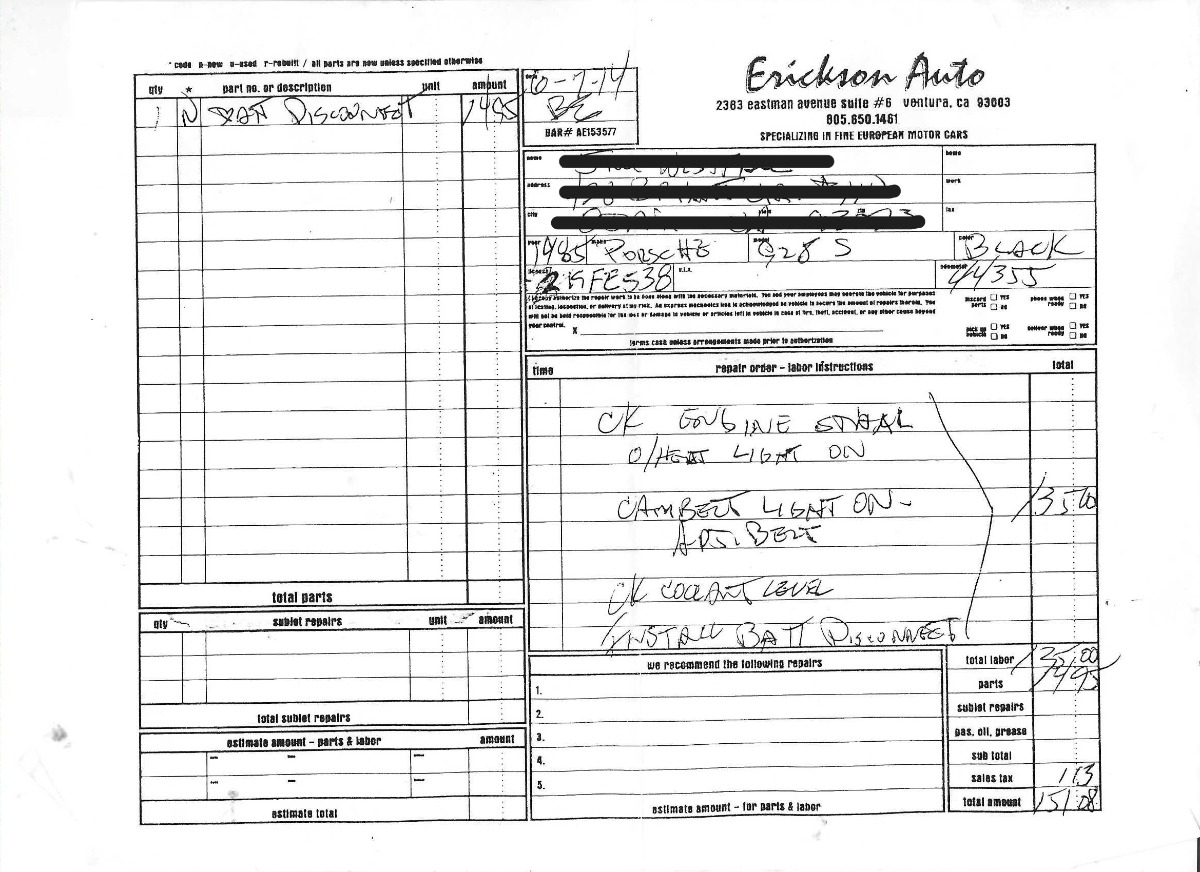 * code n-new u-used r-rebuilt / all parts are new unless specified otherwise
qty * part no. or description unit amount
1 N BATT DISCONNECT 1495
total parts
qty sublet repairs unit amount
total sublet repairs
estimate amount - parts & labor amount
estimate total
-7-14
BAR# AE153577
Erickson Auto
2363 eastman avenue suite #6 ventura, ca 93003
805.650.1461
SPECIALIZING IN FINE EUROPEAN MOTOR CARS
name home
address work
city state zip fax
year 1985 make PORSCHE model 928 S color BLACK
license v.i.n. odometer 44355
I hereby authorize the repair work to be done along with the necessary materials. You and your employees may operate the vehicle for purposes
of testing, inspection, or delivery at my risk. An express mechanics lien is acknowledged on vehicle to secure the amount of repairs thereto. You
will not be held responsible for the loss or damage to vehicle or articles left in vehicle in case of fire, theft, accident, or any other cause beyond
your control. X
discard parts YES NO phone when ready YES NO
pick up vehicle YES NO deliver when ready YES NO
terms cash unless arrangements made prior to authorization
time repair order - labor instructions total
CK ENGINE
O/HEAT LIGHT ON
CAMBELT LIGHT ON - 13500
ADJ. BELT
CK COOLANT LEVEL
INSTALL BATT DISCONNECT
we recommend the following repairs
1.
2.
3.
4.
5.
estimate amount - for parts & labor
total labor 135.00
parts 1495
sublet repairs
gas, oil, grease
sub total
sales tax 113
total amount 151.08